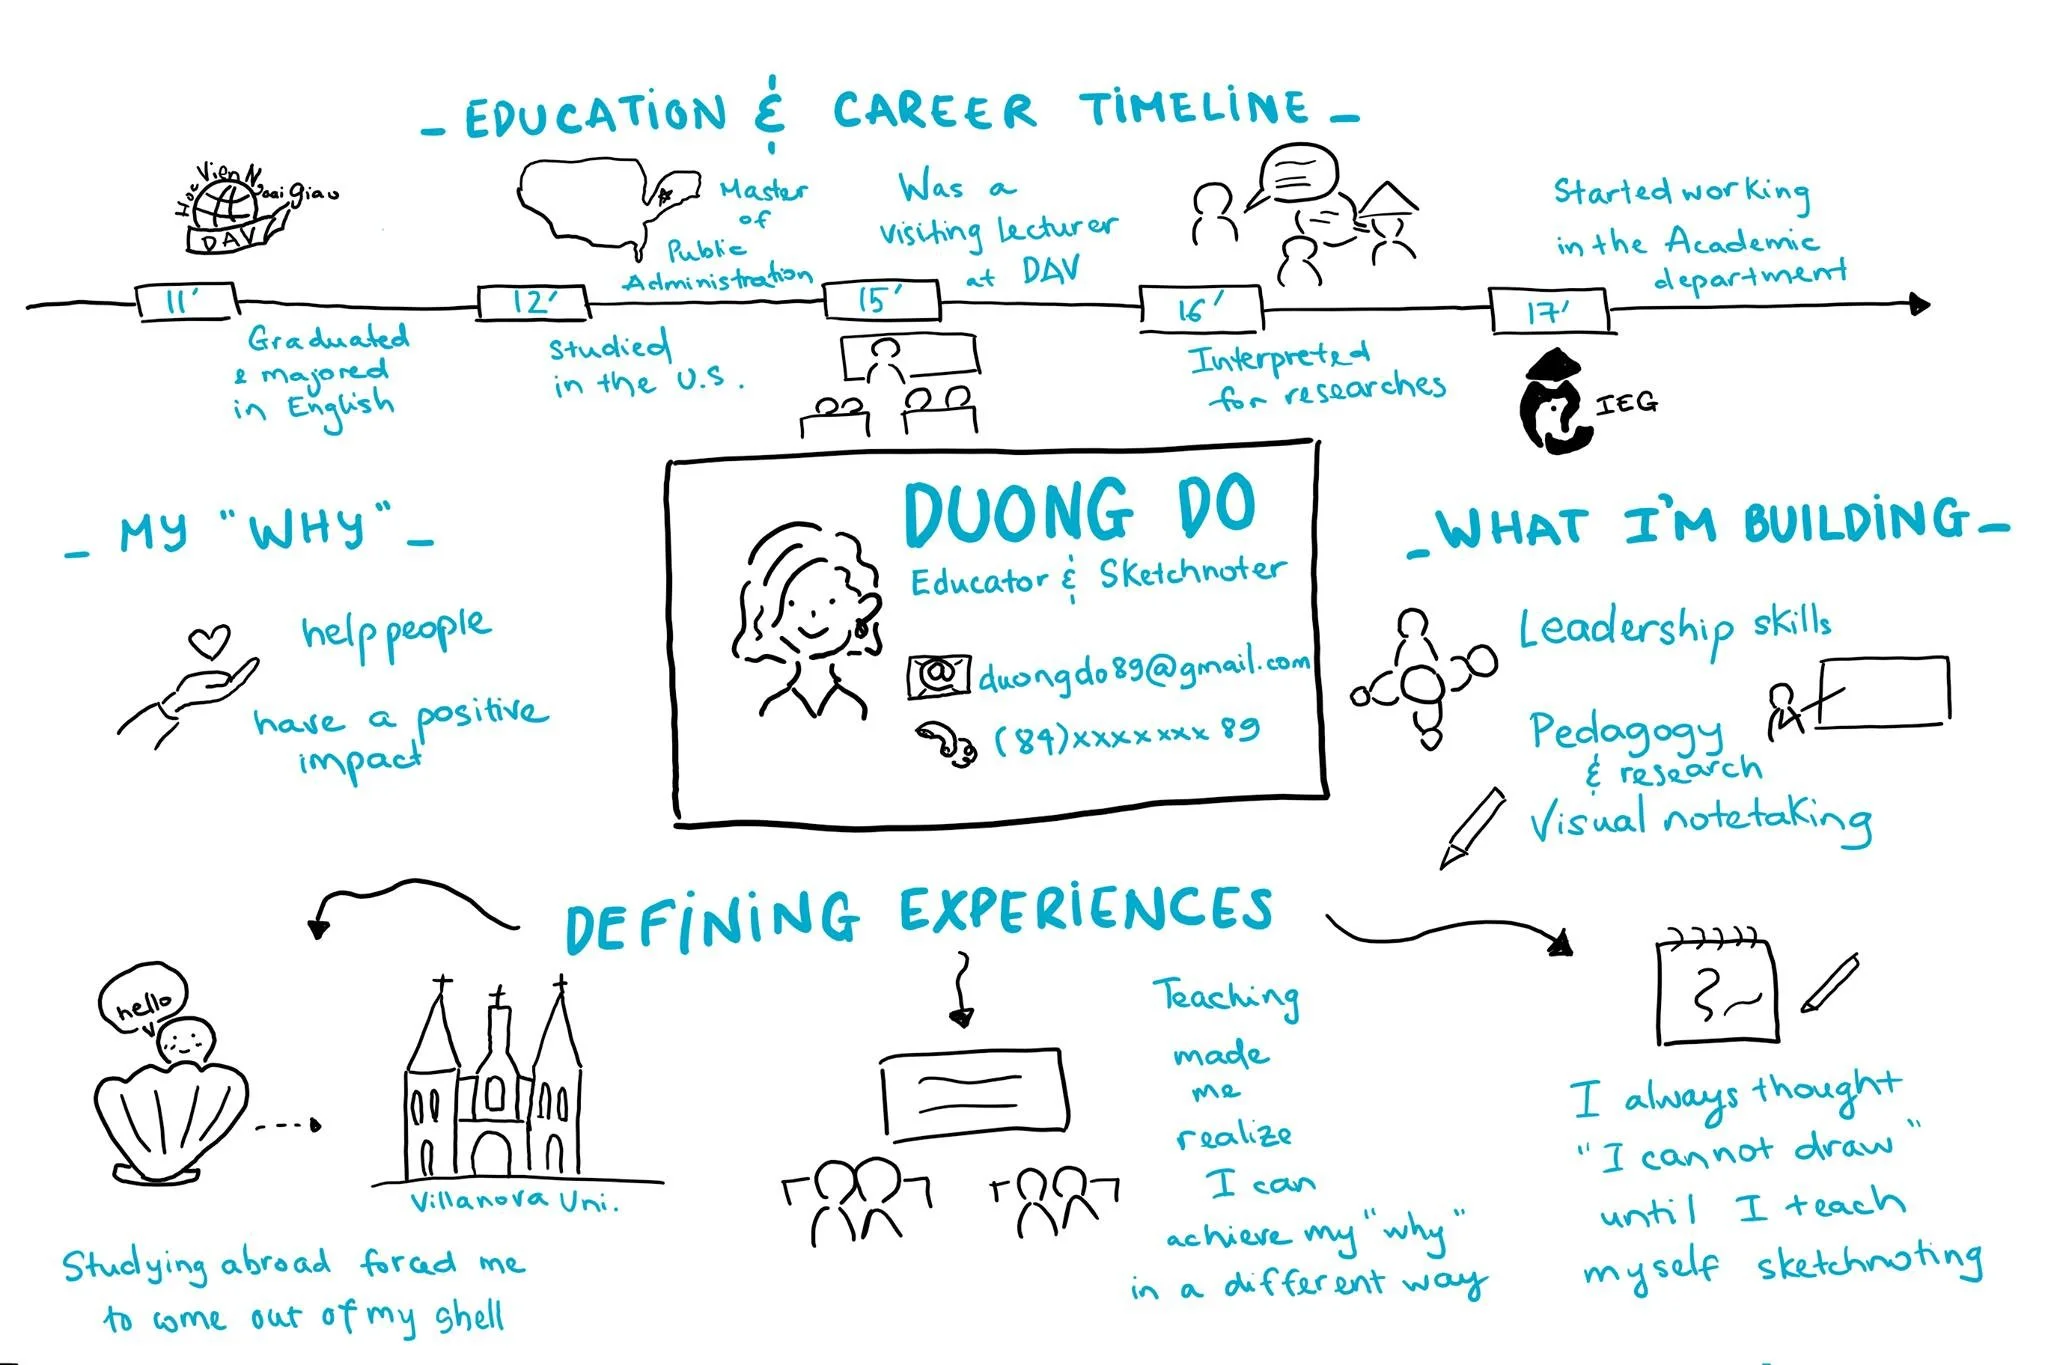 - EDUCATION & CAREER TIMELINE -
Hoc Vien Ngoai Giao
DAV
11'
Graduated
& majored
in English
12'
Master
of
Public
Administration
Studied
in the U.S.
Was a
visiting lecturer
at DAV
15'
16'
Interpreted
for researches
Started working
in the Academic
department
17'
IEG
- MY "WHY" -
help people
have a positive
impact
DUONG DO
Educator & Sketchnoter
@ duongdo89@gmail.com
(84)xxxxxxx89
- WHAT I'M BUILDING -
Leadership skills
Pedagogy
& research
Visual notetaking
DEFINING EXPERIENCES
hello
Villanova Uni.
Studying abroad forced me
to come out of my shell
Teaching
made
me
realize
I can
achieve my "why"
in a different way
I always thought
"I cannot draw"
until I teach
myself sketchnoting